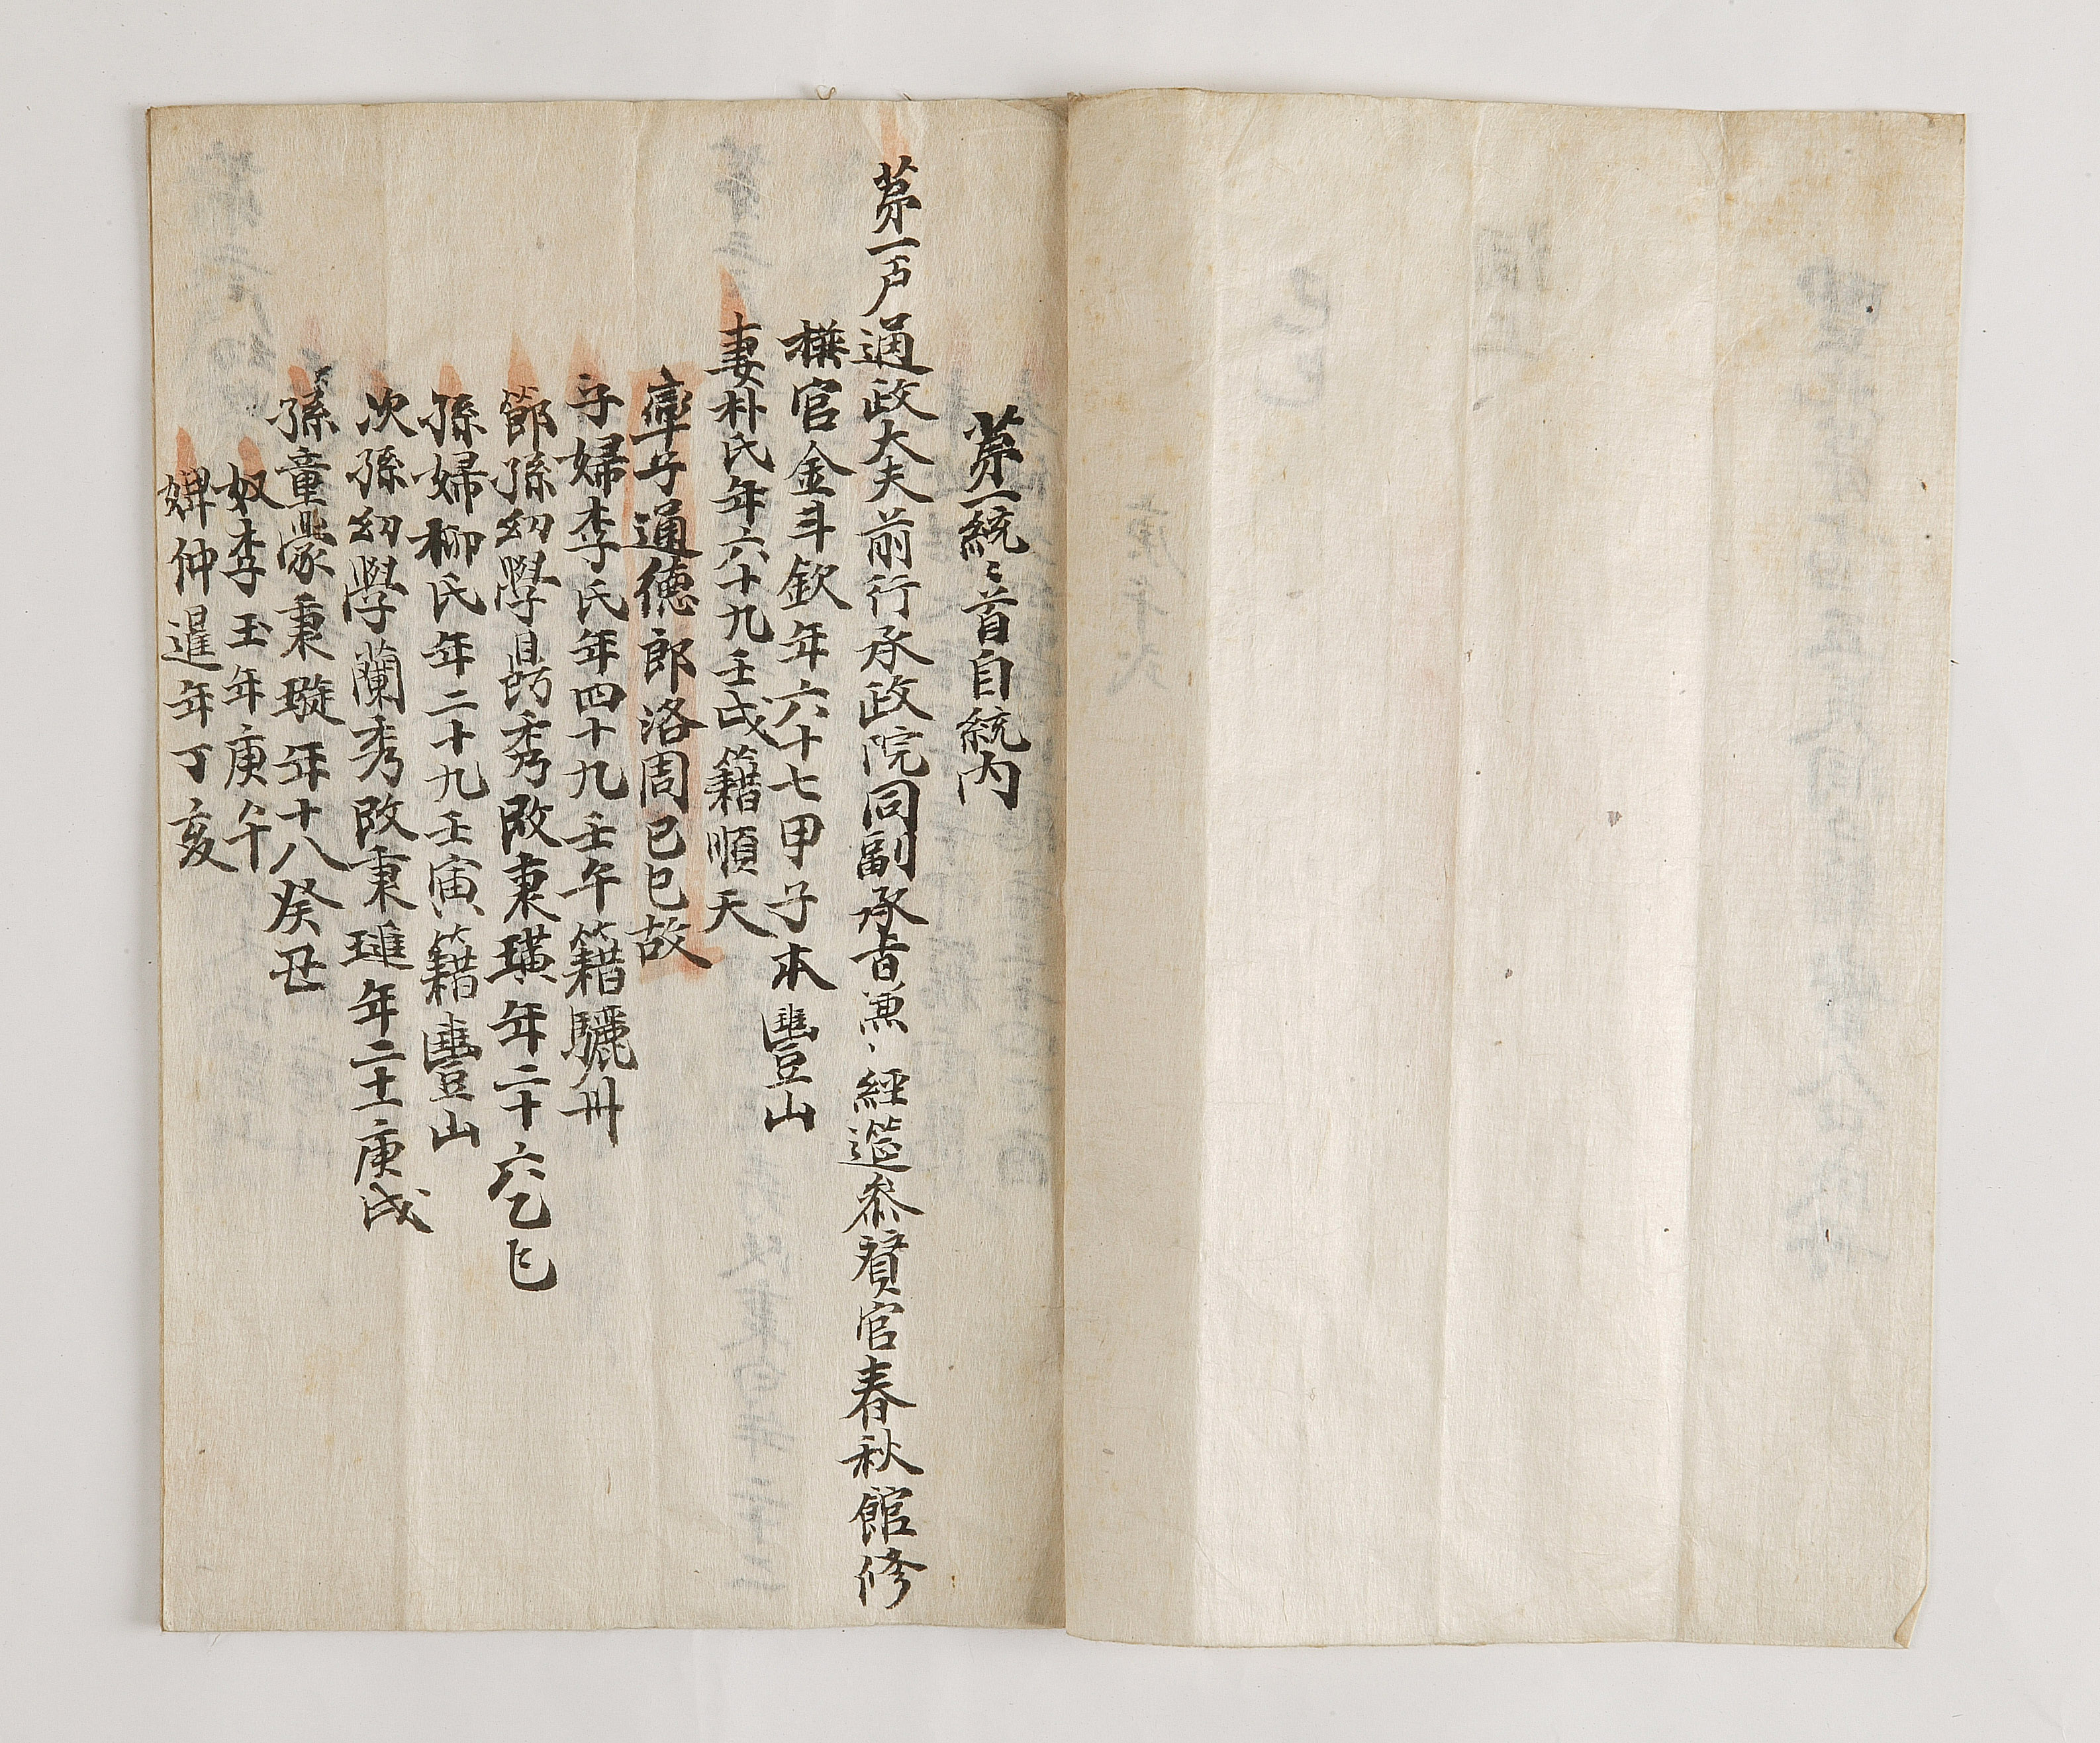 第一統〻首自統內
第一戶通政大夫前行承政院同副承旨兼、經筵叅贊官春秋館修
撰官金斗欽年六十七甲子本豐山
妻朴氏年六十九壬戌籍順天
率子通德郎洛周已巳故
子婦李氏年四十九壬午籍驪州
節孫幼學昌秀改秉璜年二十六乙巳
孫婦柳氏年二十九壬寅籍豐山
次孫幼學蘭秀改秉璡年二十一庚戌
孫童蒙秉璇年十八癸丑
奴李玉年庚午
婢仲暹年丁亥